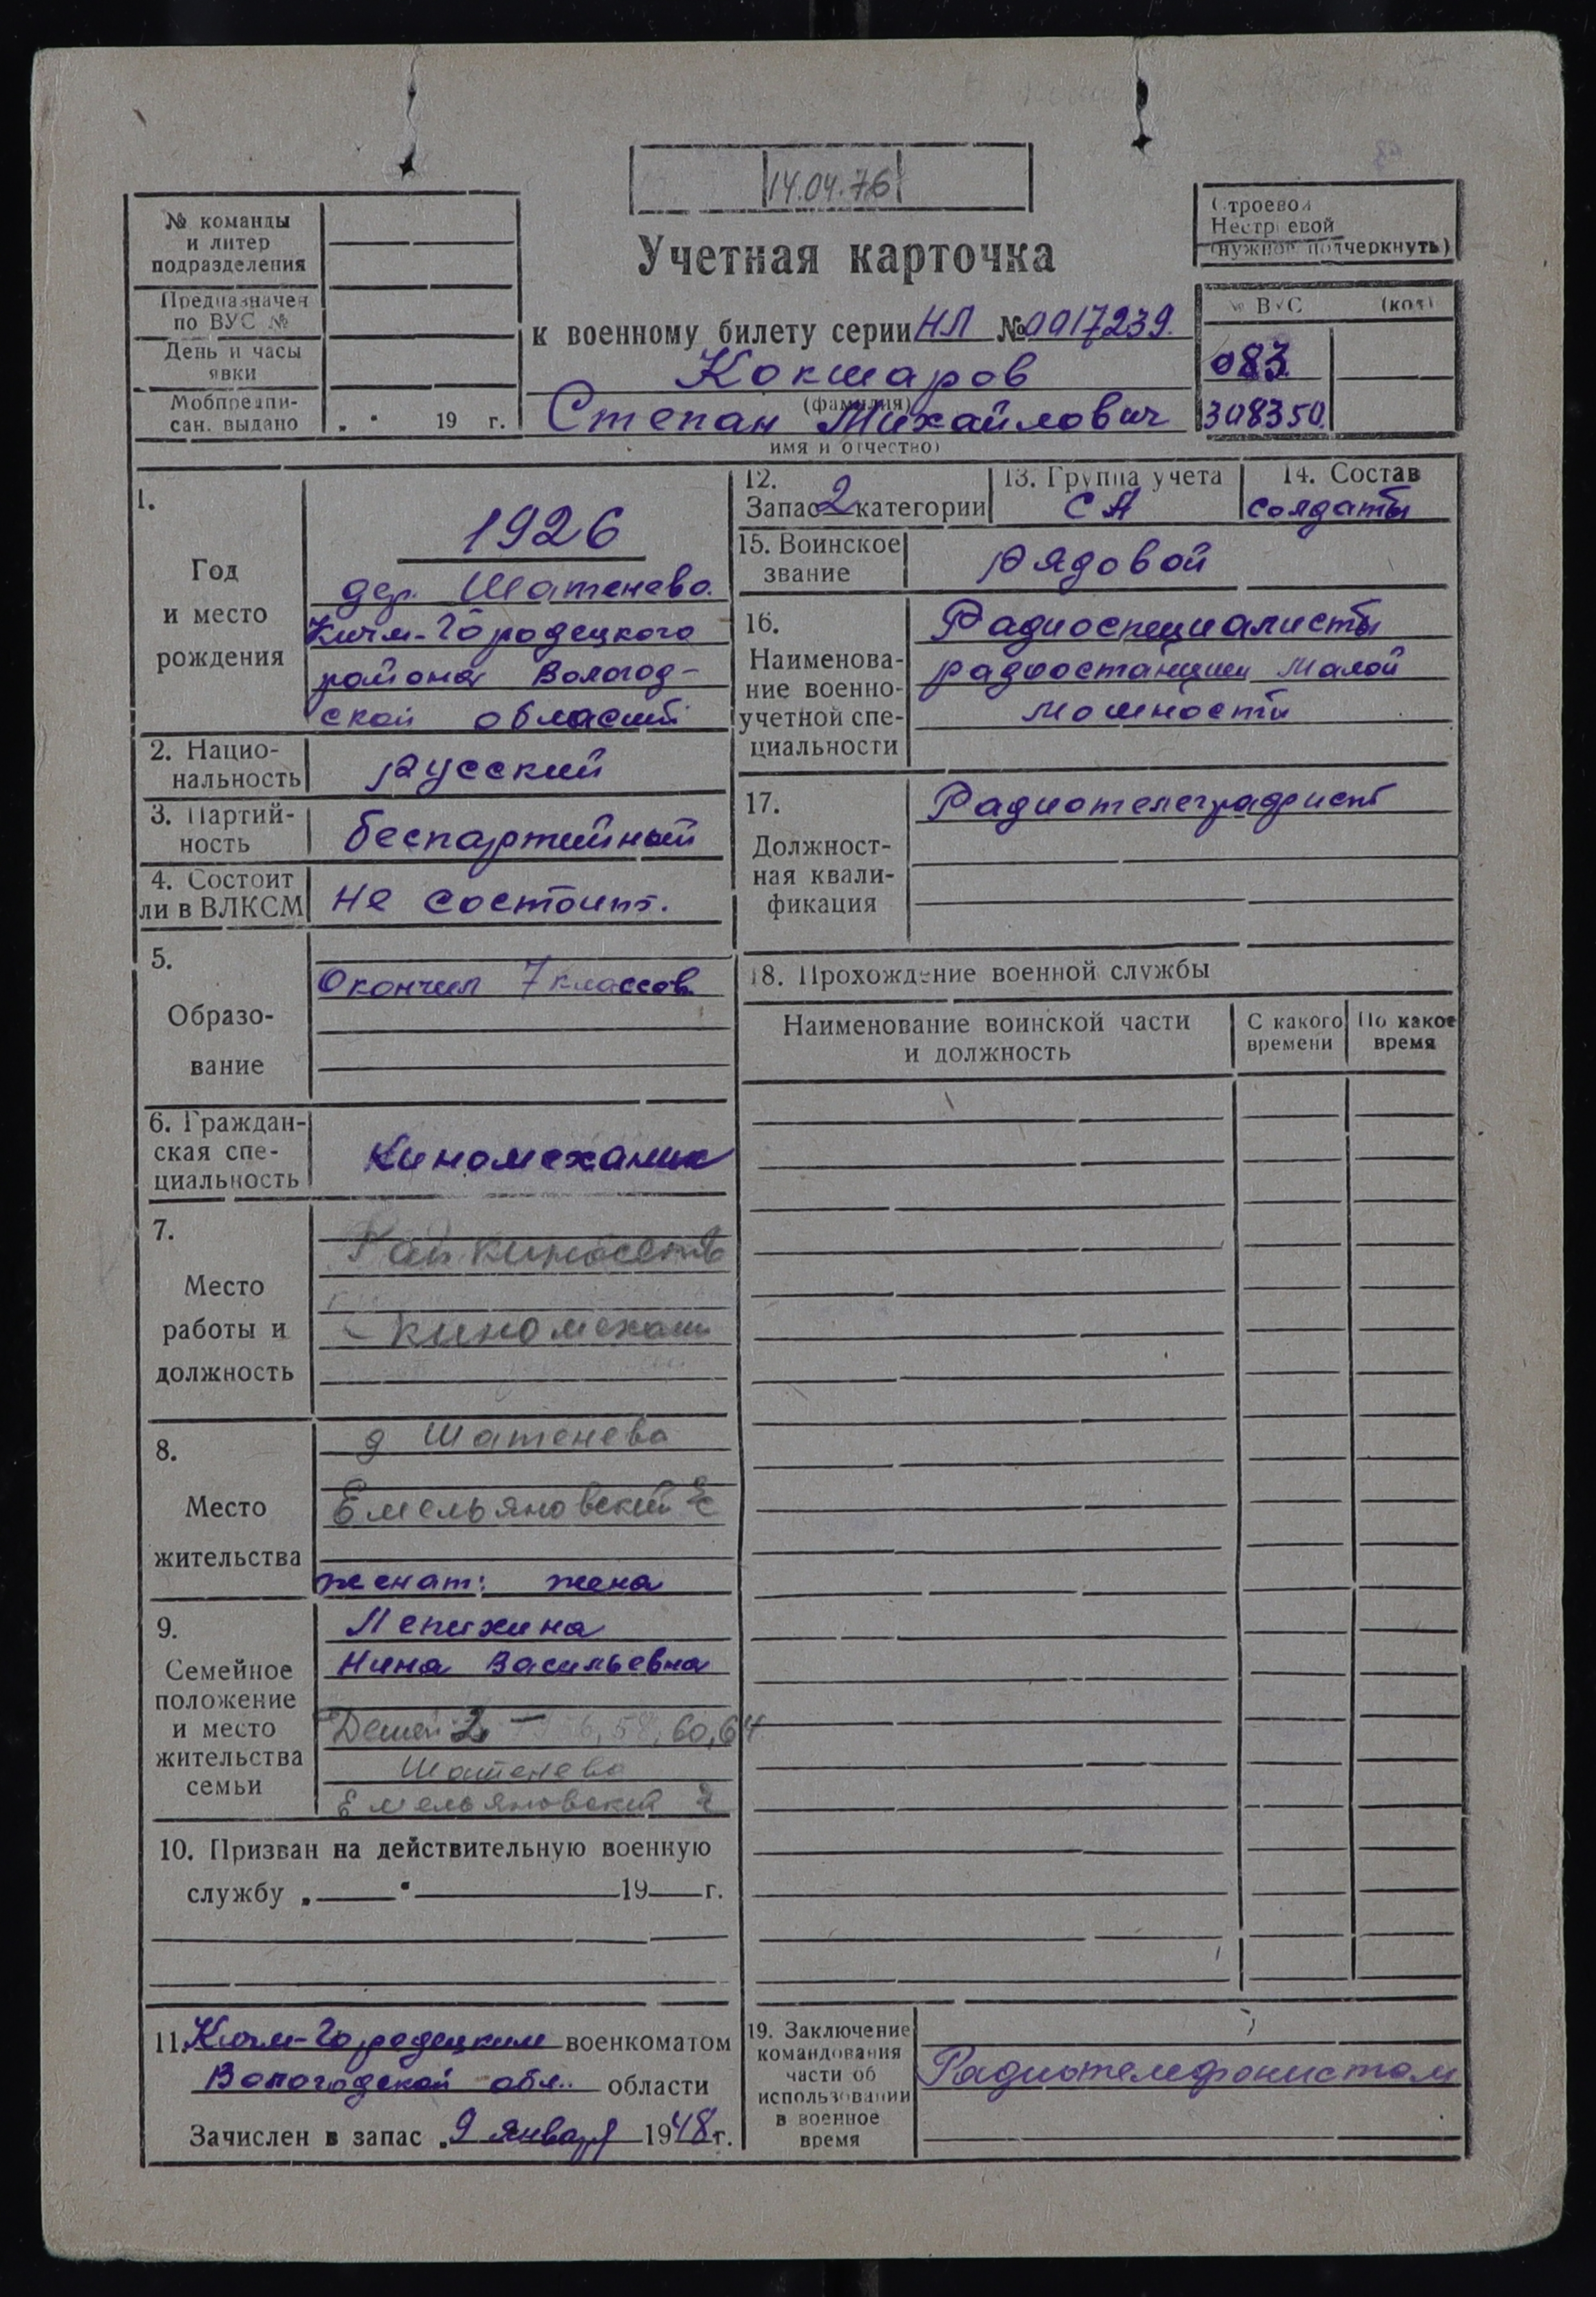 14.04.76
№ команды
и литер
подразделения
Предназначен
по ВУС №
День и часы
явки
Мобпредпи-
сан. выдано „ " 19 г.
Учетная карточка
к военному билету серии НЛ № 0017239.
Кокшаров
(фамилия)
Степан Михайлович
имя и отчество)
Строевой
Нестроевой
(нужное подчеркнуть)
№ ВУС (код)
083
308350.
1.
Год
и место
рождения
1926
дер. Шатенево.
Кичм-Городецкого
района Вологод-
ской области
2. Нацио-
нальность
русский
3. Партий-
ность
беспартийный
4. Состоит
ли в ВЛКСМ
не состоит.
5.
Образо-
вание
Окончил 7 классов.
6. Граждан-
ская спе-
циальность
Киномеханик
7.
Место
работы и
должность
Рай.киносеть
- киномехан
8.
Место
жительства
д Шатенево
Емельяновский
женат: жена
9.
Семейное
положение
и место
жительства
семьи
Лепихина
Нина Васильевна
Детей 2 - 58, 60, 64
Шатенево
Емельяновский
10. Призван на действительную военную
службу „ " 19 г.
11. Кичм-Городецким военкоматом
Вологодской обл. области
Зачислен в запас „9 января 1948 г.
12.
Запас 2 категории
13. Группа учета
СА
14. Состав
солдаты
15. Воинское
звание
рядовой
16.
Наименова-
ние военно-
учетной спе-
циальности
Радиоспециалисты
радиостанции малой
мощности
17.
Должност-
ная квали-
фикация
Радиотелеграфист
18. Прохождение военной службы
Наименование воинской части
и должность
С какого
времени
По какое
время
19. Заключение
командования
части об
использовании
в военное
время
Радиотелефонистом